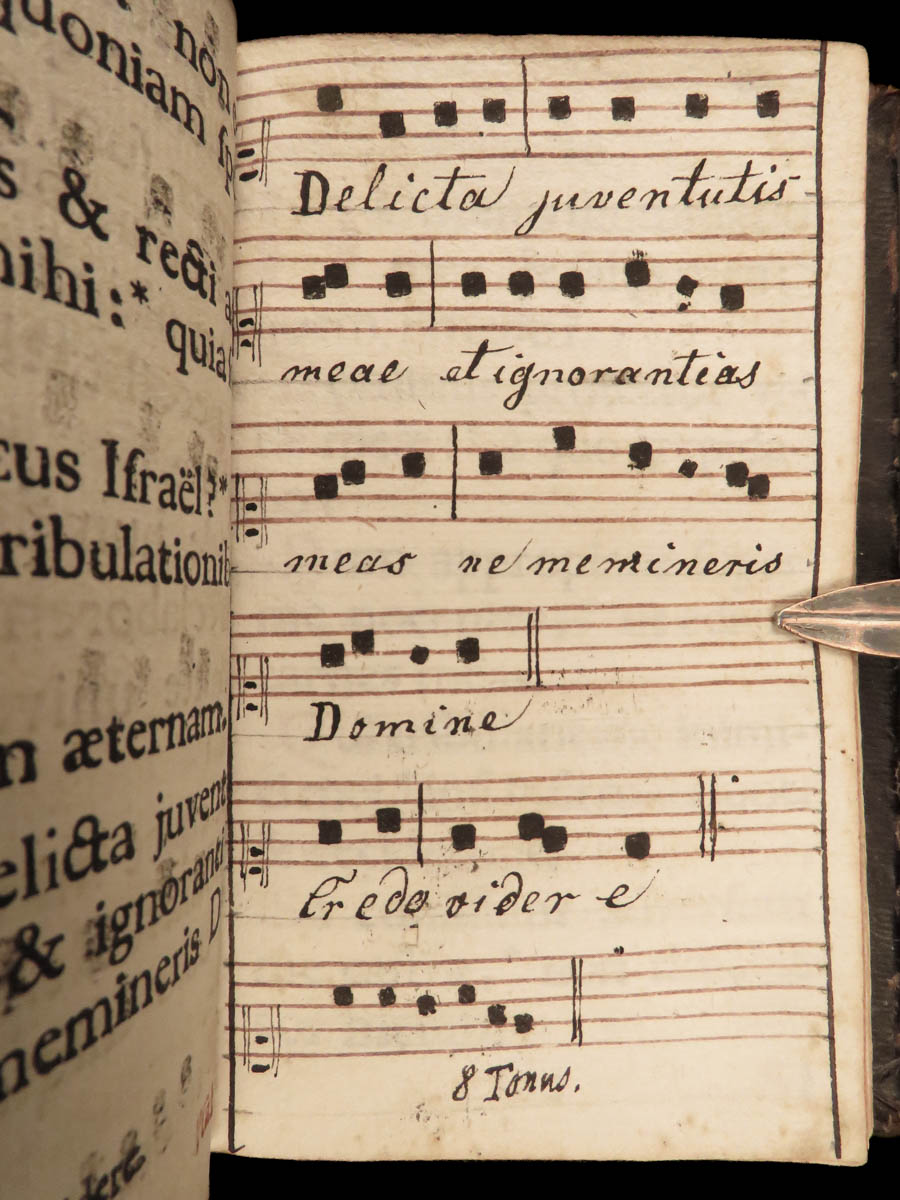 non
quoniam sp
& recti a
mihi:* quia
Iſraël?*
tribulationib
æternam.
delicta juvent
& ignoranti
nemineris D
Delicta juventutis
meae et ignorantias
meas ne memineris
Domine
Credo videre
8 Tonus.